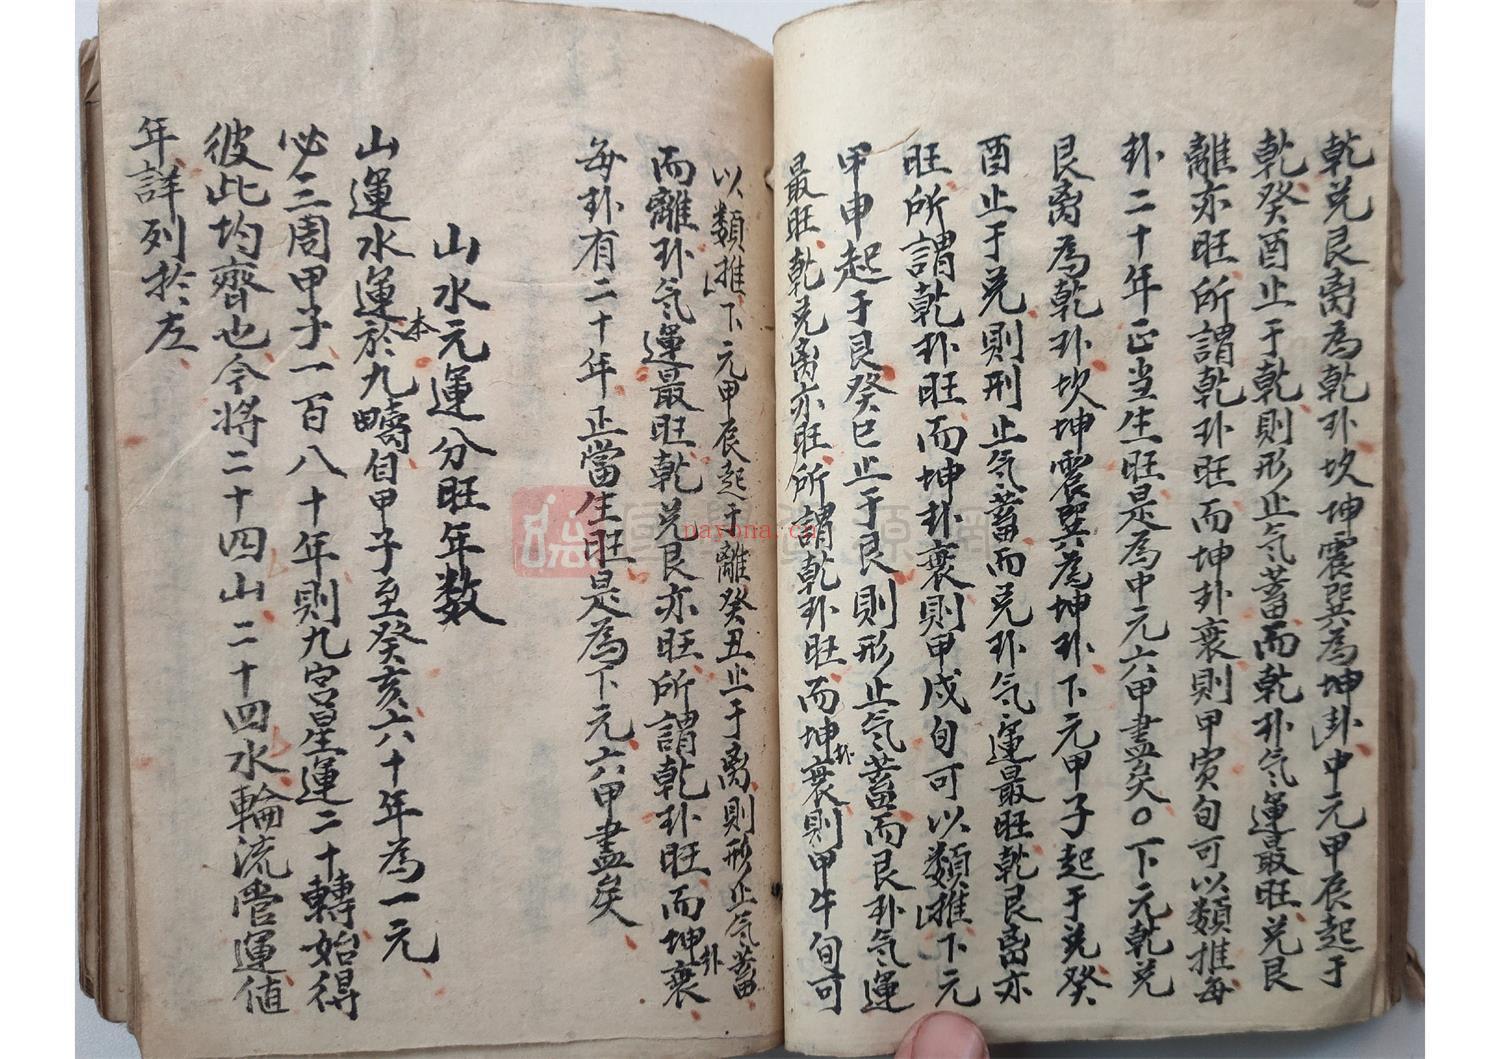 乾兑艮离為乾卦坎坤震巽為坤卦中元甲辰起于
乾癸酉止于乾則形止气蓄而乾卦气運最旺兑艮
離亦旺所謂乾卦旺而坤卦衰則甲寅旬可以類推每
卦二十年正当生旺是為中元六甲盡矣○下元乾兑
艮离為乾卦坎坤震巽為坤卦下元甲子起于兑癸
酉止于兑則刑止气蓄而兑卦气運最旺乾艮离亦
旺所謂乾卦旺而坤卦衰則甲戌旬可以類推下元
甲申起于艮癸巳止于艮則形止气蓄而艮卦气運
最旺乾兑离亦旺所謂乾卦旺而坤卦衰則甲午旬可
以類推下元甲辰起于離癸丑止于离則形止气蓄
而離卦气運最旺乾兑艮亦旺所謂乾卦旺而坤卦衰
每卦有二十年正當生旺是為下元六甲盡矣
山水元運分旺年数
山運水運本於九疇自甲子至癸亥六十年為一元
必三周甲子一百八十年則九宮星運二十轉始得
彼此均齊也今将二十四山二十四水輪流管運值
年詳列於左
nayona.cn